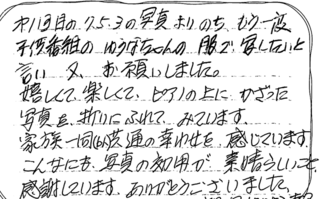 オ1回目の7.5.3の写真よりのち、もう一度
子供番組のゆうなちゃんの服で写したいと
言い 又、お願いしました。
嬉しくて、楽しくて、ピアノの上にかざった
写真を、折りにふれて、みています。
家族一同が共通の幸わせを、感じています
こんなにも、写真の効用が、素晴らしいこと
感謝しています ありがとうございました。